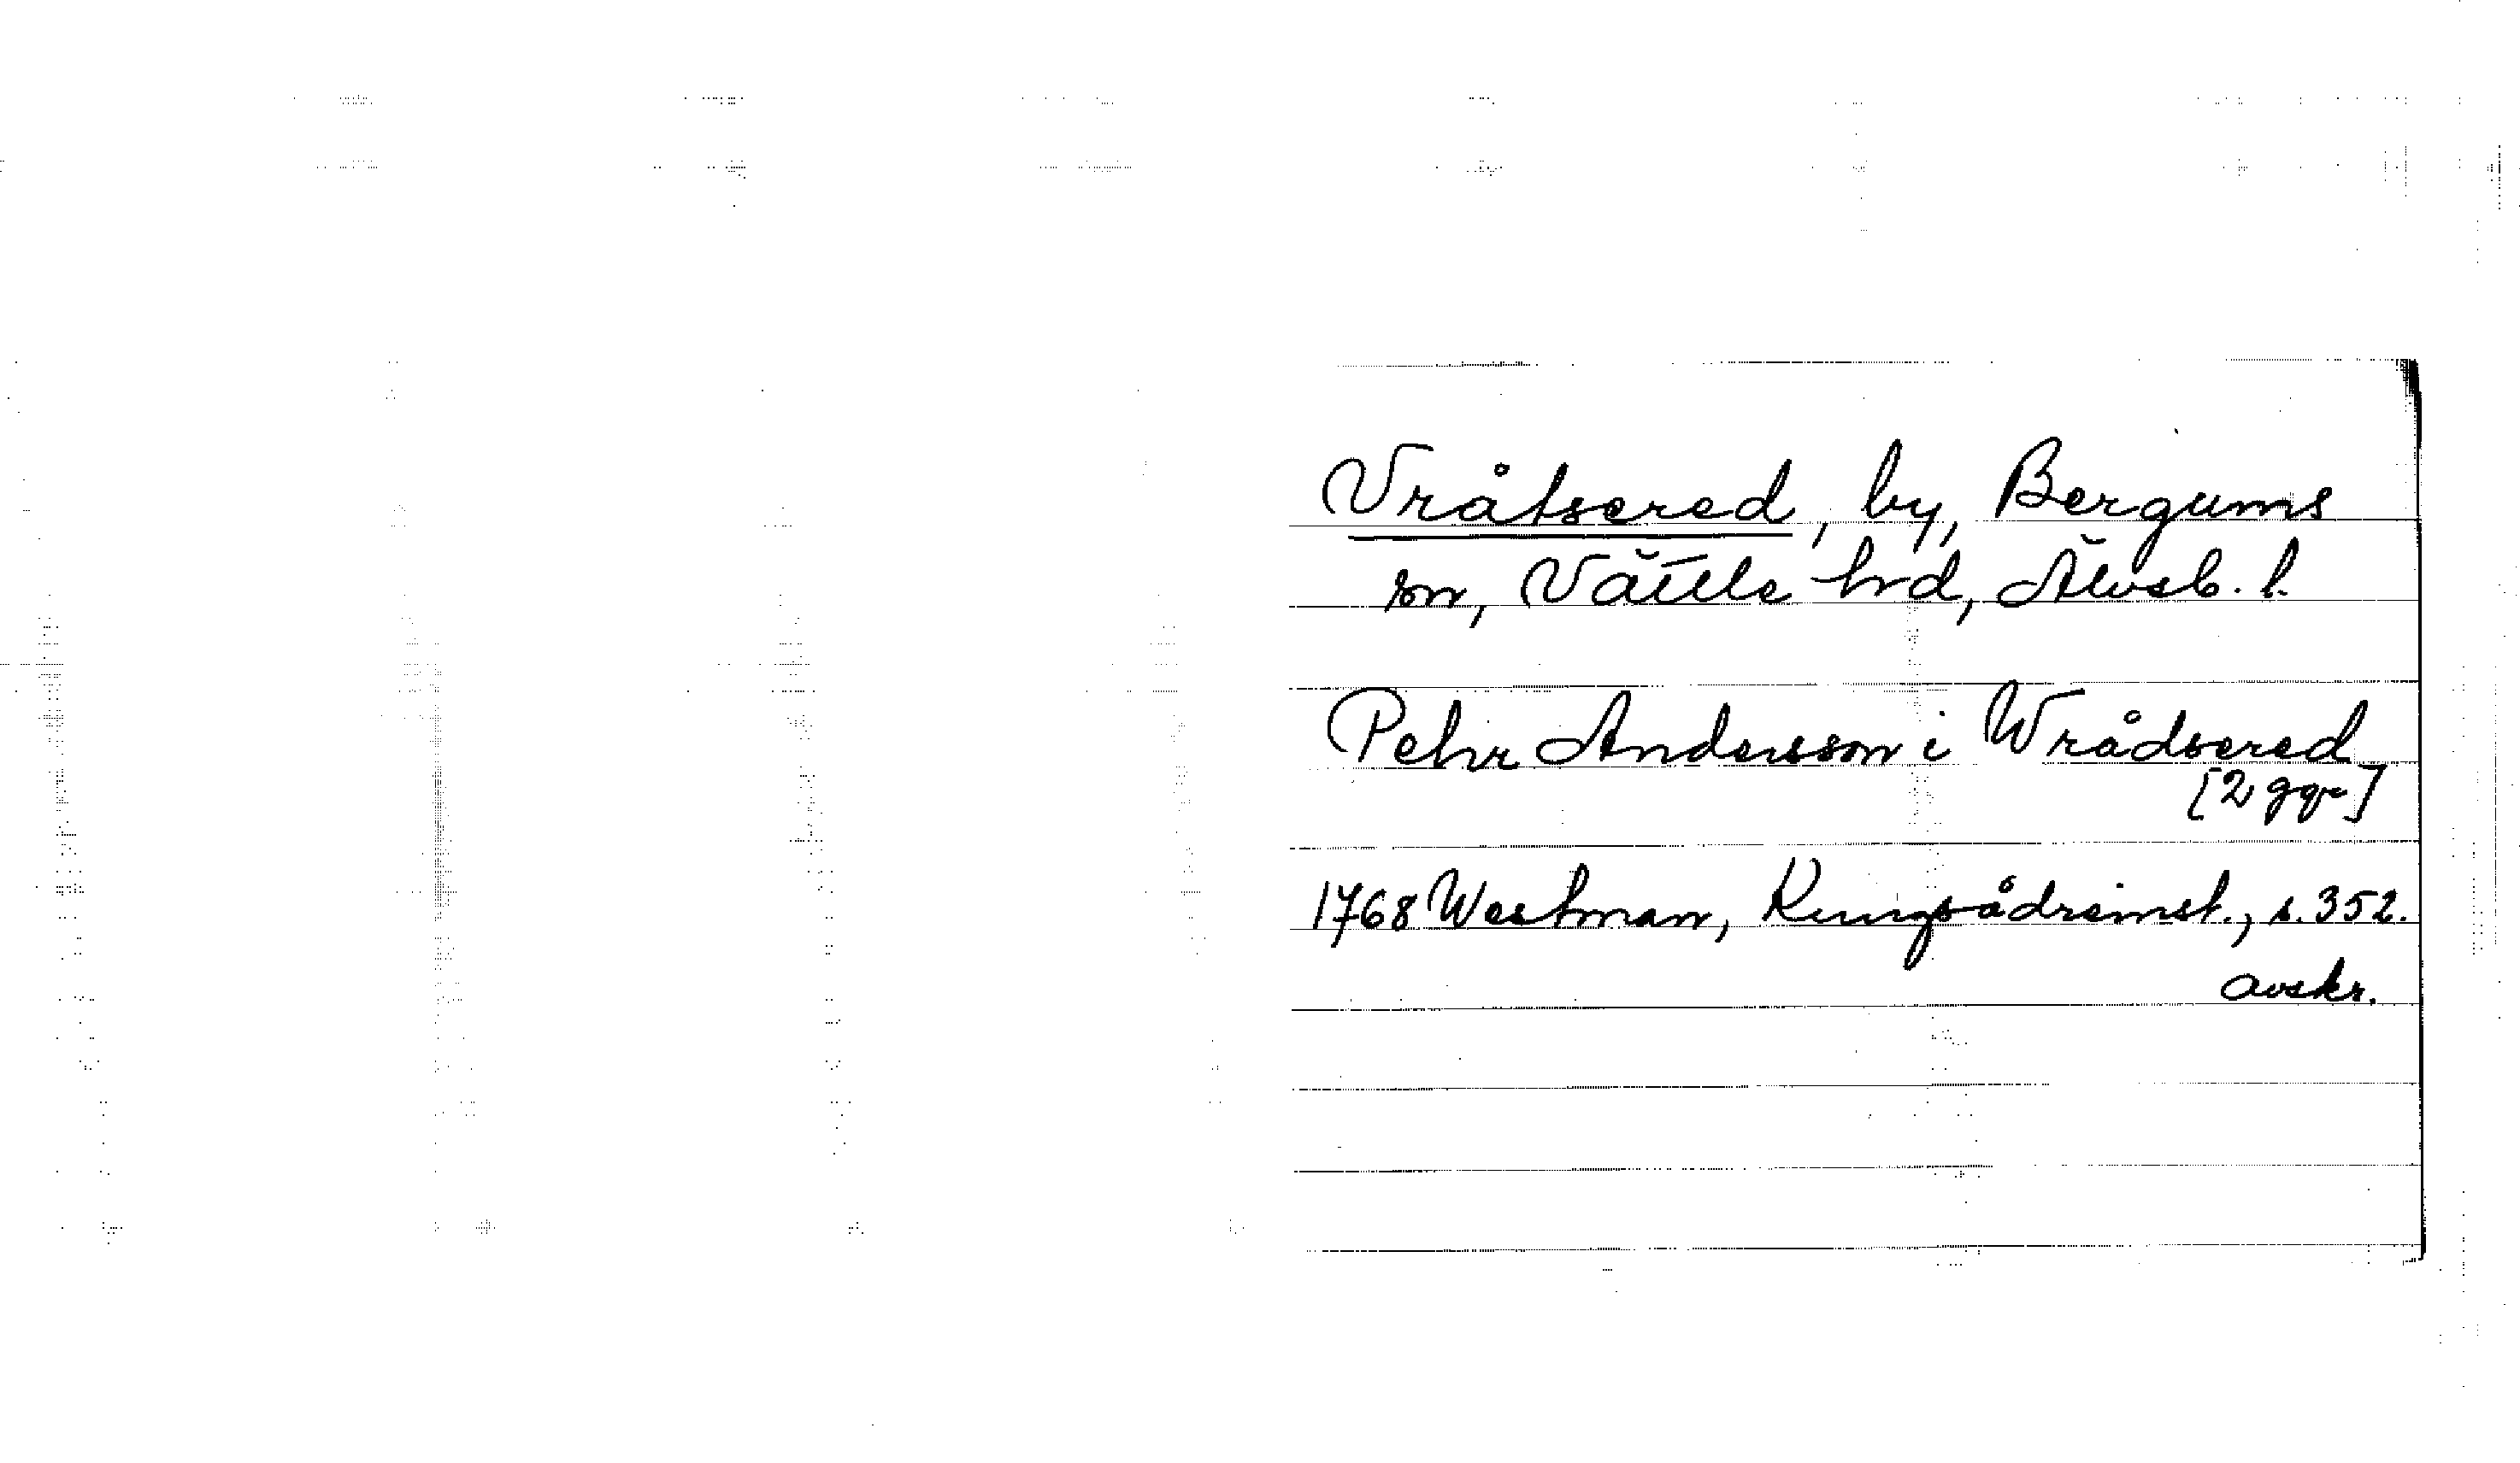 Vråtsered, by, Bergums
sn, Vättle hrd, Älvsb. l.
Pehr Andersson i Wrådsered
[2 ggr]
1768 Westman, Kungsådreinst., s. 352.
avskr.